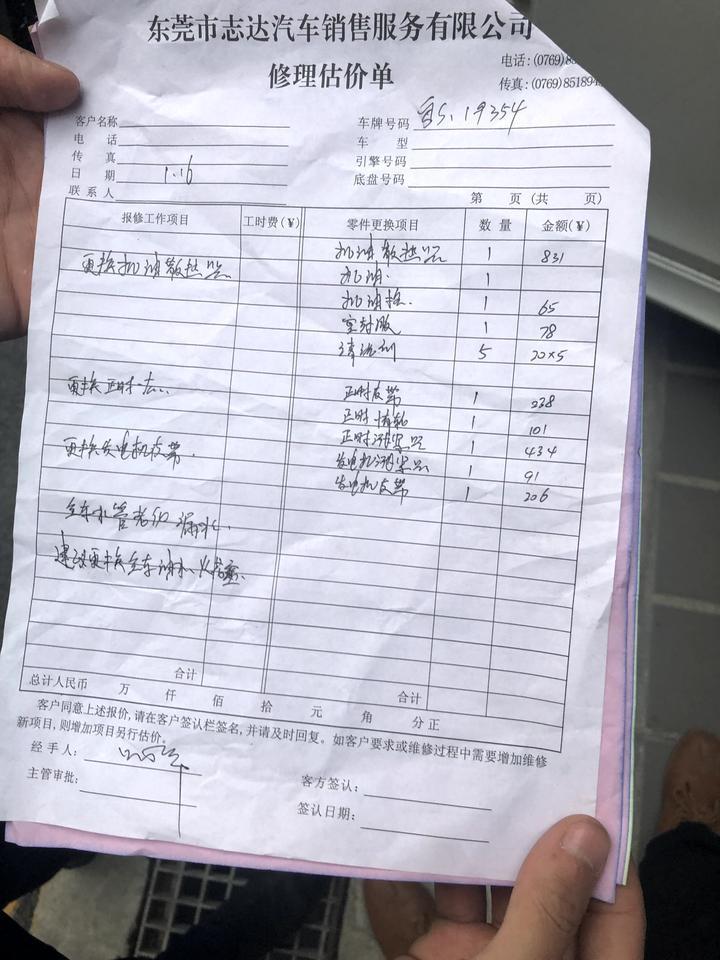 东莞市志达汽车销售服务有限公司
修理估价单
电话:(0769)8
传真:(0769)85189
客户名称
电 话
传 真
日 期 1.16
联系人
车牌号码 S.19354
车 型
引擎号码
底盘号码
第 页(共 页)
报修工作项目 工时费(¥) 零件更换项目 数量 金额(¥)
更换机油散热器 机油散热器 1 831
机油 1
机油格 1 65
密封胶 1 78
清洗剂 5 20×5
更换正时 正时皮带 1 238
正时惰轮 1 101
更换发电机皮带 正时涨紧器 1 434
发电机涨紧器 1 91
发电机皮带 1 206
全车水管老化漏水
建议更换全车油水
合计 合计
总计人民币 万 仟 佰 拾 元 角 分正
客户同意上述报价,请在客户签认栏签名,并请及时回复。如客户要求或维修过程中需要增加维修
新项目,则增加项目另行估价。
经手人:
主管审批:
客方签认:
签认日期: